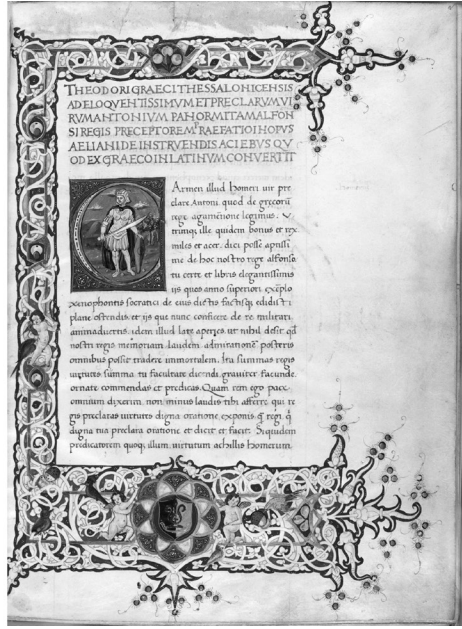 THEODORI GRAECI THESSALONICENSIS
AD ELOQVENTISSIMVM ET PRECLARVM VI
RVM ANTONIVM PANORMITAM ALFON
SI REGIS PRECEPTOREM PRAEFATIO IN OPVS
AELIANI DE INSTRVENDIS ACIEBVS QV
OD EX GRAECO IN LATINVM CONVERTIT
CArmen illud homeri uir pre
clare Antoni quod de grecorū
rege agamēnone legimus. V
trunq; ille quidem bonus et rex
miles et acer. dici posse aptissi
me de hoc nostro rege alfonso
tu certe et libris elegantissimis
ijs quos anno superiori exēplo
xenophontis socratici de eius dictis factisq; edidisti
plane ostendis. et ijs que nunc conficere de re militari
animaduertis. idem illud late aperies. ut nihil desit qd̄
nostri regis memoriam laudem admirationē posteris
omnibus possit tradere immortalem. Ita summas regis
uirtutes summa tu facultate dicendi grauiter facunde
ornate commendas et predicas. Quam rem ego pace
omnium dixerim non minus laudis tibi afferre qui re
gis preclaras uirtutes digna oratione exponis. q̄ regi q̄
digna tua preclara oratione et dicit et facit. Siquidem
predicatorem quoq; illum uirtutum achillis homerum